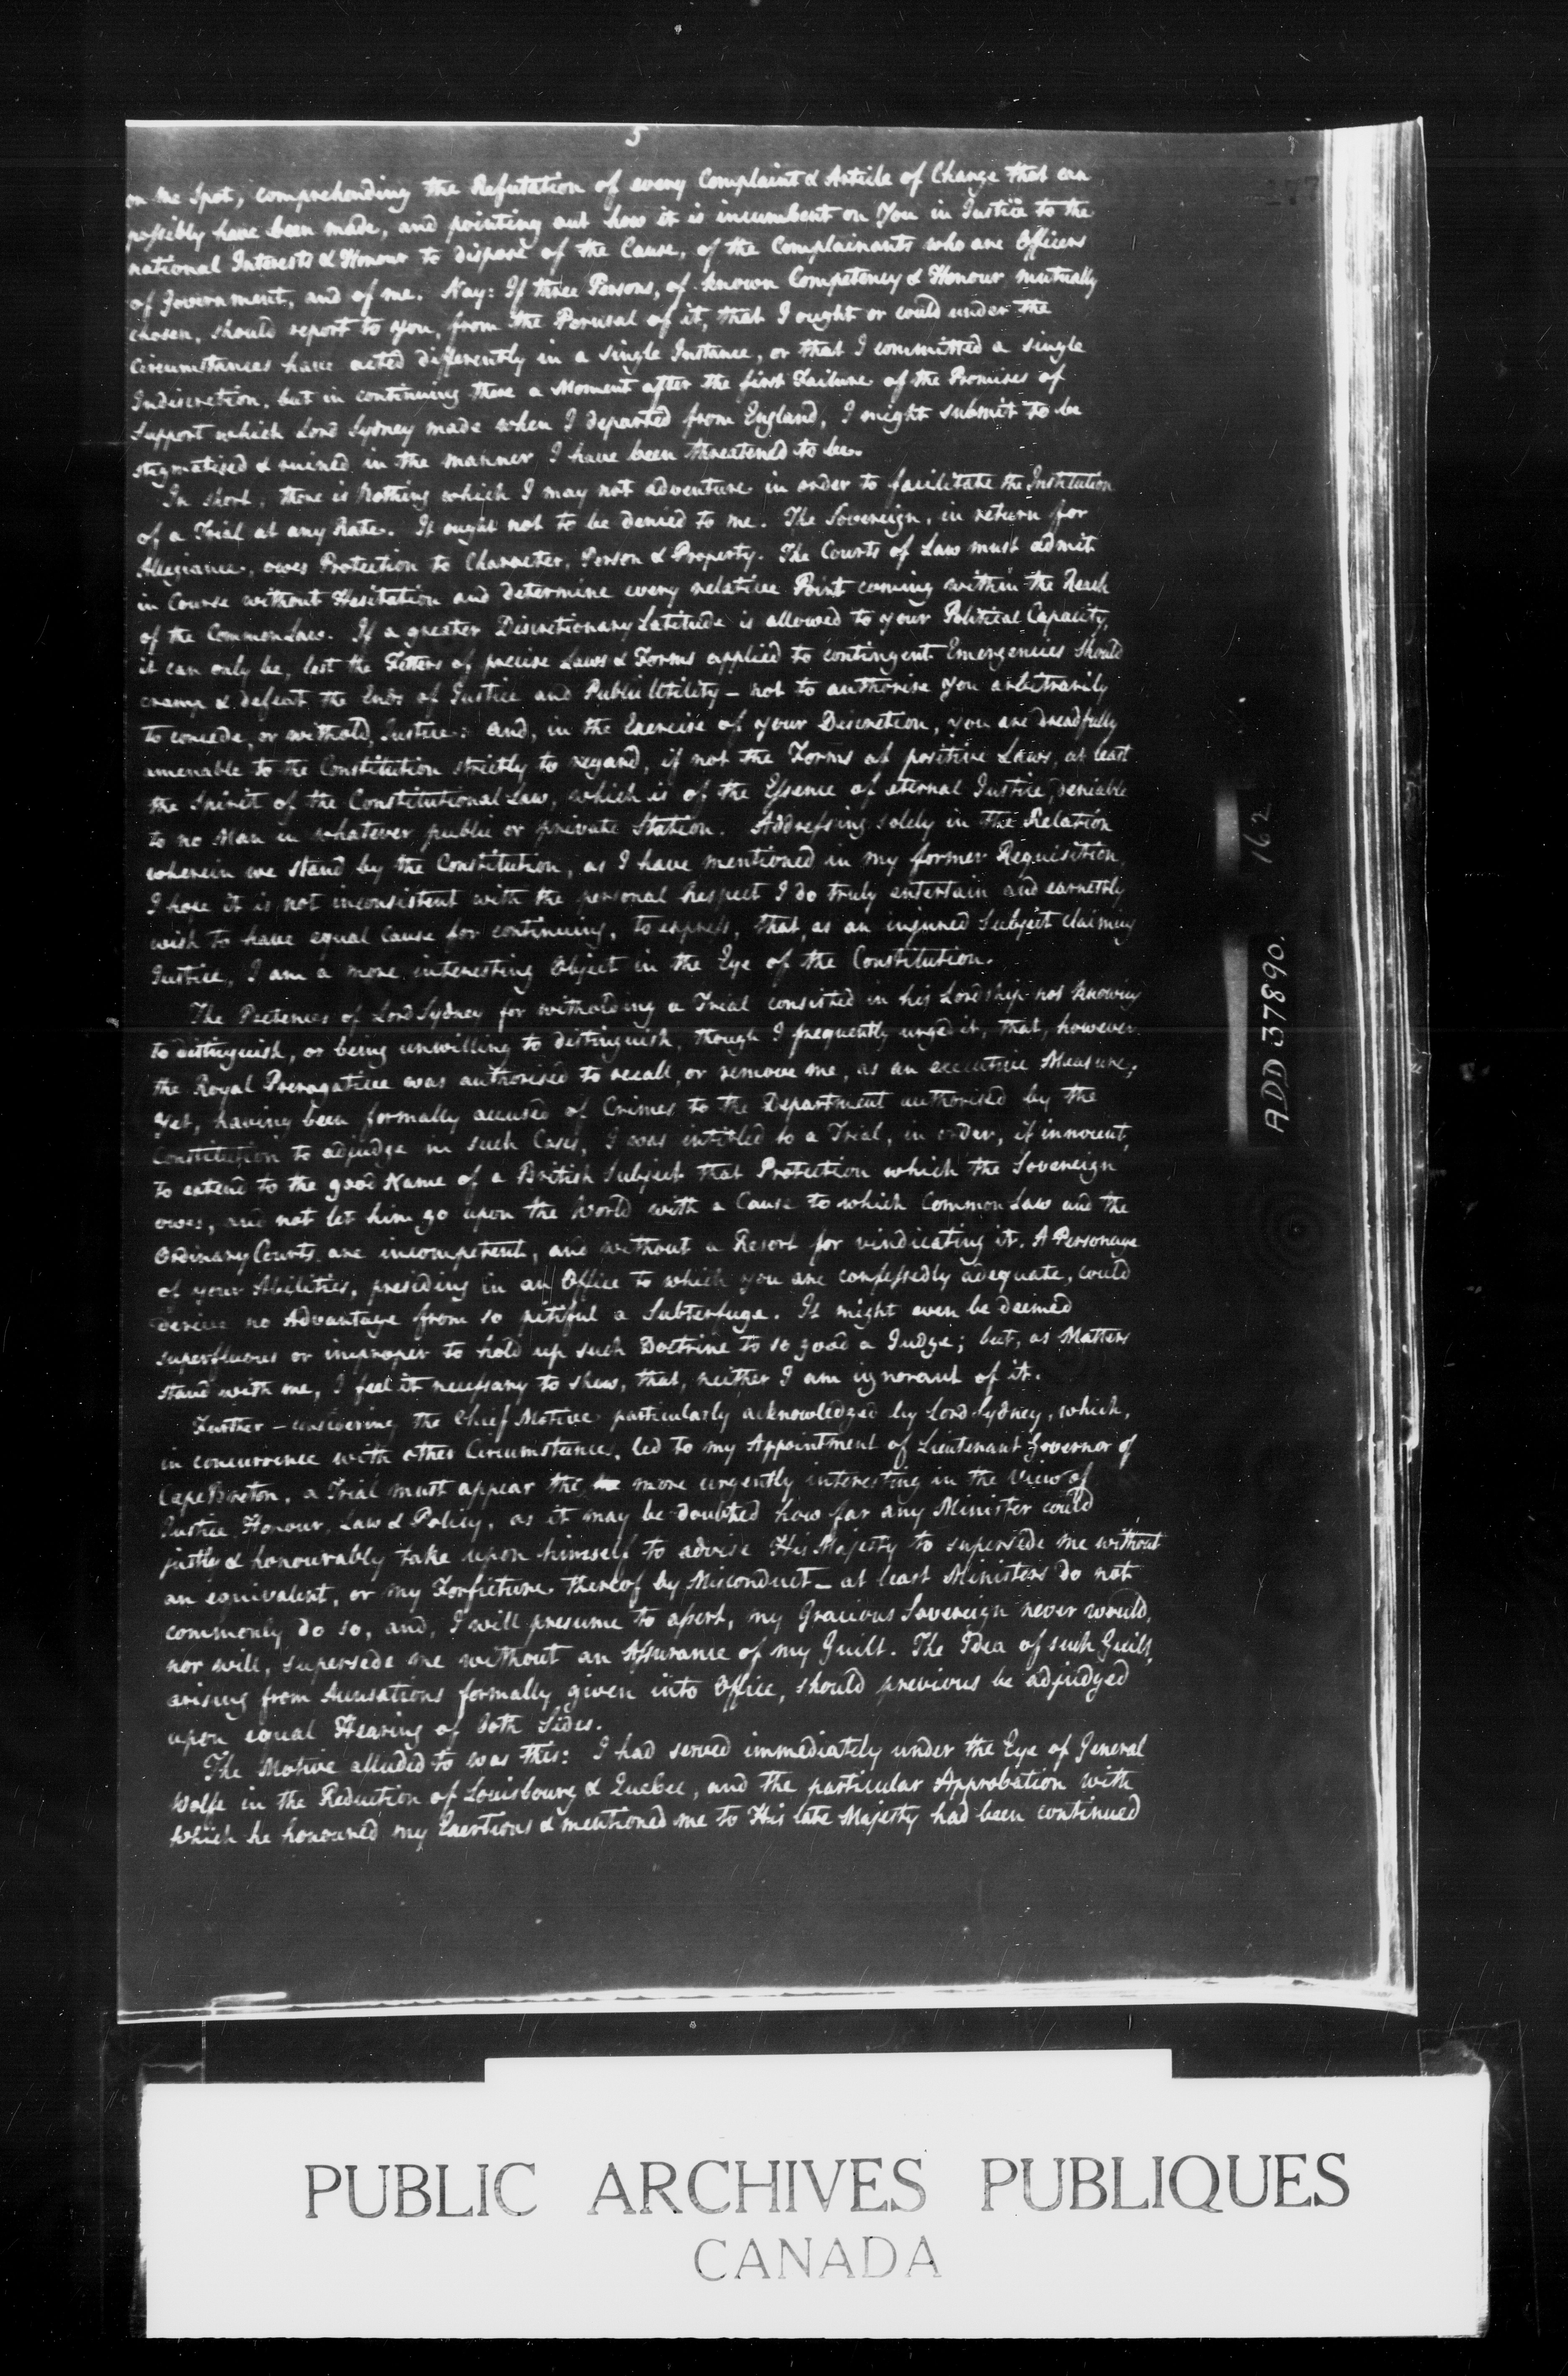 5
on the Spot, comprehending the Refutation of every Complaint & Article of Charge that can
possibly have been made, and pointing out how it is incumbent on You in Justice to the
national Interests & Honour to dispose of the Cause, of the Complainants who are Officers
of Government, and of me. Nay: If three Persons, of known Competency & Honour mutually
chosen, should report to you, from the Perusal of it, that I ought or could under the
Circumstances have acted differently in a single Instance, or that I committed a single
Indiscretion, but in continuing there a Moment after the first Failure of the Promises of
Support which Lord Sydney made when I departed from England, I might submit to be
stigmatised & ruined in the manner I have been threatened to be.
In short, there is Nothing which I may not adventure in order to facilitate the Institution
of a Trial at any Rate. It ought not to be denied to me. The Sovereign, in return for
Allegiance, owes Protection to Character, Person & Property. The Courts of Law must admit
in Course without Hesitation and determine every relative Point coming within the Reach
of the Common Law. If a greater Discretionary Latitude is allowed to your Political Capacity,
it can only be, lest the Fetters of precise Laws & Forms applied to contingent Emergencies should
cramp & defeat the Ends of Justice and Public Utility – not to authorise you arbitrarily
to concede, or withold, Justice: and, in the Exercise of your Discretion, you are dreadfully
amenable to the Constitution strictly to regard, if not the Forms of positive Laws, at least
the Spirit of the Constitutional Law, which is of the Essence of eternal Justice, deniable
to no Man in whatever public or private Station. Addressing solely in the Relation
wherein we stand by the Constitution, as I have mentioned in my former Requisition,
I hope it is not inconsistent with the personal Respect I do truly entertain and earnestly
wish to have equal Cause for continuing, to express, that, as an injured Subject claiming
Justice, I am a more interesting Object in the Eye of the Constitution.
The Pretences of Lord Sydney for witholding a Trial consisted in his Lordship not knowing
to distinguish, or being unwilling to distinguish, though I frequently urged it, that, however
the Royal Prerogative was authorised to recall, or remove me, as an executive Measure,
yet, having been formally accused of Crimes to the Department authorised by the
Constitution to adjudge in such Cases, I was intitled to a Trial, in order, if innocent,
to extend to the good Name of a British Subject that Protection which the Sovereign
owes, and not let him go upon the World with a Cause to which Common Law and the
Ordinary Courts are incompetent, and without a Resort for vindicating it. A Personage
of your Abilities, presiding in an Office to which you are confessedly adequate, could
derive no Advantage from so pitiful a Subterfuge. It might even be deemed
superfluous or improper to hold up such Doctrine to so good a Judge; but, as Matters
stand with me, I feel it necessary to shew, that, neither I am ignorant of it.
Further – considering the chief Motive particularly acknowledged by Lord Sydney, which,
in concurrence with other Circumstances, led to my Appointment of Lieutenant Governor of
Cape Breton, a Trial must appear the more urgently interesting in the View of
Justice, Honour, Law & Policy, as it may be doubted how far any Minister could
justly & honourably take upon himself to advise His Majesty to supersede me without
an equivalent, or my Forfieture thereof by Misconduct – at least Ministers do not
commonly do so, and, I will presume to assert, my Gracious Sovereign never would,
nor will, supersede me without an Assurance of my Guilt. The Idea of such Guilt,
arising from Accusations formally given into Office, should previous be adjudged
upon equal Hearing of both Sides.
The Motive alluded to was this: I had served immediately under the Eye of General
Wolfe in the Reduction of Louisbourg & Quebec, and the particular Approbation with
which he honoured my Exertions & mentioned me to His late Majesty had been continued
177
162
ADD 37890.
PUBLIC ARCHIVES PUBLIQUES
CANADA